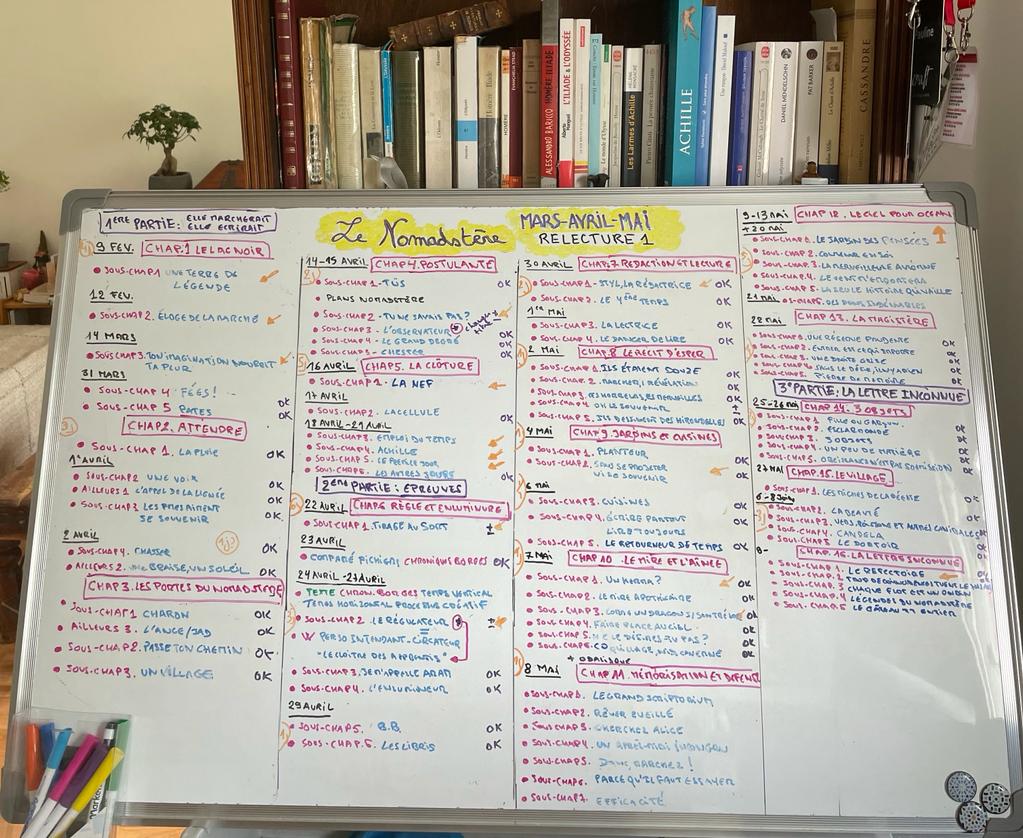 ALESSANDRO BARICCO HOMÈRE, ILIADE
L'ILIADE & L'ODYSSÉE
Alberto Manguel
HOMÈRE
Les Larmes d'Achille
ACHILLE
DANIEL MENDELSOHN
PAT BARKER
CASSANDRE
Le Nomadstère
MARS-AVRIL-MAI
RELECTURE 1
1ERE PARTIE: ELLE MARCHERAIT
ELLE ECRIRAIT
9 FEV. CHAP.1 LE LAC NOIR
SOUS-CHAP.1 UNE TERRE DE
LÉGENDE
12 FEV.
SOUS-CHAP2. ÉLOGE DE LA MARCHE
14 MARS
SOUS CHAP3. TON IMAGINATION NOURRIT
TA PLUR
31 MARS
SOUS-CHAP 4 FÉES! OK
SOUS-CHAP 5 PATES OK
CHAP2. ATTENDRE
SOUS-CHAP 1. LA PLUIE OK
1er AVRIL
SOUS-CHAP2 UNE VOIX OK
AILLEURS 1 L'APPEL DE LA LIGNÉE OK
SOUS-CHAP3 LES
SE SOUVENIR OK
2 AVRIL
SOUS-CHAP4. CHASSER OK
AILLEURS 2. UNE BRAISE, UN SOLEIL OK
CHAP 3. LES PORTES DU NOMADSTÈRE
SOUS-CHAP 1 CHARON OK
AILLEURS 3. L'ANGE/JAD OK
SOUS-CHAP2. PASSE TON CHEMIN OK
SOUS-CHAP3. UN VILLAGE OK
14-15 AVRIL CHAP4. POSTULANTE
SOUS-CHAP1 - TÜS OK
PLANS NOMADSTÈRE
SOUS-CHAP2 - TU NE SAVAIS PAS?
SOUS-CHAP3 - L'OBSERVATEUR OK
SOUS-CHAP4 - LE GRAND DEGRÉ OK
SOUS-CHAP5 - CHESTER OK
16 AVRIL CHAP5. LA CLÔTURE
SOUS-CHAP1 - LA NEF
17 AVRIL
SOUS-CHAP2. LA CELLULE OK
18 AVRIL-21 AVRIL
SOUS-CHAP3. EMPLOI DU TEMPS
SOUS-CHAP4. ACHILLE
SOUS-CHAP5. LE PREMIER JOUR
SOUS-CHAP6. LES AUTRES JOURS OK
2EME PARTIE: EPREUVES
22 AVRIL CHAP6 REGLE ET ENLUMINURE
SOUS-CHAP1 TIRAGE AU SORT ±
23 AVRIL
COMPARÉ FICHIERS CHRONIQUE BORGES OK
24 AVRIL-27 AVRIL
TEXTE CHRON. BORGES TEMPS VERTICAL
TEMPS HORIZONTAL PROCESSUS CRÉATIF
SOUS-CHAP2 LE RÉGULATEUR ±
W PERSO INTENDANT-CIRCATEUR
"LE CLOÎTRE DES APPRENTIS"
SOUS-CHAP3. JE M'APPELLE ARAN OK
SOUS-CHAP4. L'ENLUMINEUR OK
29 AVRIL
SOUS-CHAP5. B.B. OK
SOUS-CHAP.6. LES LIBRIS OK
30 AVRIL CHAP.7 REDACTION ET LECTURE
SOUS-CHAP1 - STYL, LA RÉDATRICE OK
SOUS-CHAP2. LE 4ÈME TEMPS OK
1er MAI
SOUS-CHAP3. LA LECTRICE OK
SOUS-CHAP4. LE DANGER DE LIRE OK
2 MAI CHAP.8 LE RECIT D'ESPER
SOUS-CHAP1. ILS ÉTAIENT DOUZE OK
SOUS-CHAP2. MARCHER, RÉVÉLATION OK
SOUS-CHAP3. MERVEILLES OK
SOUS-CHAP4 OU LE SOUVENIR ±
SOUS-CHAP5. ILS DESSINENT DES HIRONDELLES OK
4 MAI CHAP 9. JARDINS ET CUISINES
SOUS-CHAP1. PLANTEUR OK
SOUS-CHAP2. SANS SE PROJETER
NI SE SOUVENIR
6 MAI
SOUS-CHAP3. CUISINES OK
SOUS-CHAP4. ÉCRIRE PARTOUT
LIRE TOUJOURS OK
SOUS-CHAP5. LE RETOURNEUR DE TEMPS OK
7 MAI CHAP 10. LE MIRE ET L'AINÉE
SOUS-CHAP1. UN HERBA? OK
SOUS-CHAP2. LE MIRE APOTHICAIRE OK
SOUS-CHAP3. COMME UN DRAGON S'ENTRAÎNE OK
SOUS-CHAP4. FAIRE PLACE AU CIEL OK
SOUS-CHAP5. NE LE DÉSIRES-TU PAS? OK
SOUS-CHAP6. COQUILLAGE, NID, CAVERNE OK
+ ODALISQUE
8 MAI CHAP 11. MÉMORISATION ET
SOUS-CHAP1. LE GRAND SCRIPTORIUM
SOUS-CHAP2. RÊVER ÉVEILLÉ
SOUS-CHAP3. CHERCHEZ ALICE
SOUS-CHAP4. UN APRÈS-MIDI
SOUS-CHAP5. DONC, MARCHEZ!
SOUS-CHAP6. PARCE QU'IL FAUT ESSAYER
SOUS-CHAP7. EFFICACITÉ
9-13 MAI CHAP 12. LE CIEL POUR OCÉAN
+ 20 MAI
SOUS-CHAP1. LE JARDIN DES PENSÉES
SOUS-CHAP2. COULEUR EN SOI
SOUS-CHAP3. LA MERVEILLEUSE
SOUS-CHAP4. LE VENT L'EMPORTERA
SOUS-CHAP5. LA SEULE HISTOIRE QUI VAILLE
21 MAI SOUS-CHAP6. DES DONS INDÉNIABLES
22 MAI CHAP 13. LA MAGISTÈRE
SOUS-CHAP1. UNE RÉGION PRUDENTE OK
SOUS-CHAP2. ÉCRIRE EST CE QUI IMPORTE OK
SOUS-CHAP3. UNE DROITE OK
SOUS-CHAP4. OK
SOUS-CHAP5. OK
3° PARTIE: LA LETTRE INCONNUE
25-26 MAI CHAP 14. 3 OBJETS
SOUS-CHAP1. FILLE OU GARÇON OK
SOUS-CHAP2. ESCLARMONDE OK
SOUS-CHAP3. 3 OBJETS OK
SOUS-CHAP4. UN PEU DE MATIÈRE OK
SOUS-CHAP5. OBÉISSANCE N'EST PAS SOUMISSION OK
27 MAI CHAP 15. LE VILLAGE
SOUS-CHAP1. LES FICHES DE LA DÉESSE OK
6-8 JUIN
SOUS-CHAP2. LA BEAUTÉ OK
SOUS-CHAP3. VERS, POISONS ET OK
SOUS-CHAP4. CANDELA OK
SOUS-CHAP5. LE DORTOIR OK
CHAP 16. LA LETTRE INCONNUE
SOUS-CHAP1. LE REFECTOIRE OK
SOUS-CHAP2.
SOUS-CHAP3. CHAQUE MOT EST UN OK
SOUS-CHAP4. LÉGENDES DU NOMADSTÈRE OK
SOUS-CHAP5